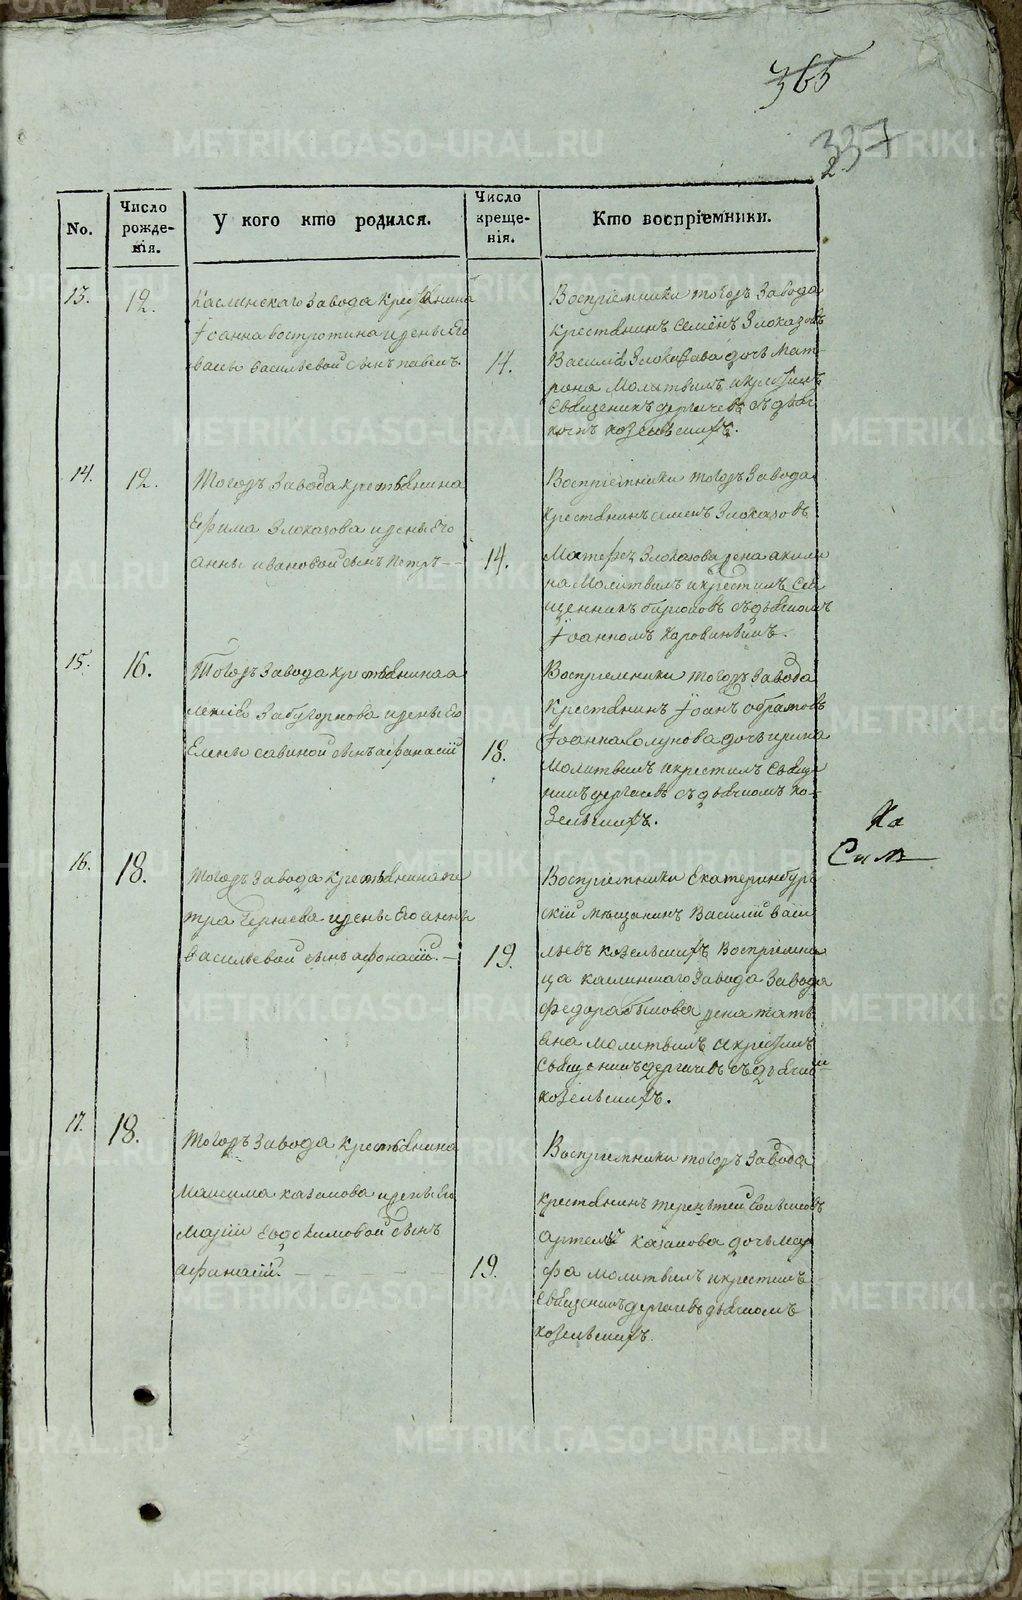 365
337
No.
Число рожде-нія.
У кого кто родился.
Число креще-нія.
Кто воспріемники.
13.
12.
Каслинскаго завода крестьянина
Іоанна востротина и жены Его
васильевой сынъ павелъ.
14.
Воспріемники тогожъ завода
крестьянинъ Семенъ Злоказовъ
Василія Злоказова дочь Мат-
рона Молитвилъ и крестилъ
Священникъ дергачевъ съ дьяч-
комъ козельскихъ.
14.
12.
Тогожъ завода крестьянина
Ефима Злоказова и жены Его
анны ивановой сынъ Петръ -
14.
Воспріемники тогожъ завода
крестьянинъ семенъ Злоказовъ
Злоказова жена акили
на Молитвилъ и крестилъ Свя
щенникъ съ дьячкомъ
Іоанномъ
15.
16.
Тогожъ завода крестьянина а
лексея Забугорнова и жены Его
Елены савиной сынъ афанасій
18.
Воспріемники тогожъ завода
Крестьянинъ Іоанъ
Іоанна дочь ирина
Молитвилъ и крестилъ Священ
никъ дергачевъ съ дьячкомъ ко-
зельскихъ.
16.
18.
Тогожъ завода крестьянина пе
тра и жены Его анны
васильевой сынъ афонасій. -
19.
Воспріемники Екатеринбур
скій мѣщанинъ Василій васи
льевъ козельскихъ Воспріемни
ца каслинскаго завода завода
федора жена тать
яна молитвилъ и крестилъ
Священникъ дергачевъ съ дьячком
козельскихъ.
17.
18.
Тогожъ завода крестьянина
Максима казакова и жены Его
Маріи Евдокимовой сынъ
афанасій. -
19.
Воспріемники тогожъ завода
крестьянинъ терентей
казакова дочь мар
фа молитвилъ и крестилъ
Священникъ дергачевъ дьячкомъ
козельскихъ
METRIKI.GASO-URAL.RU